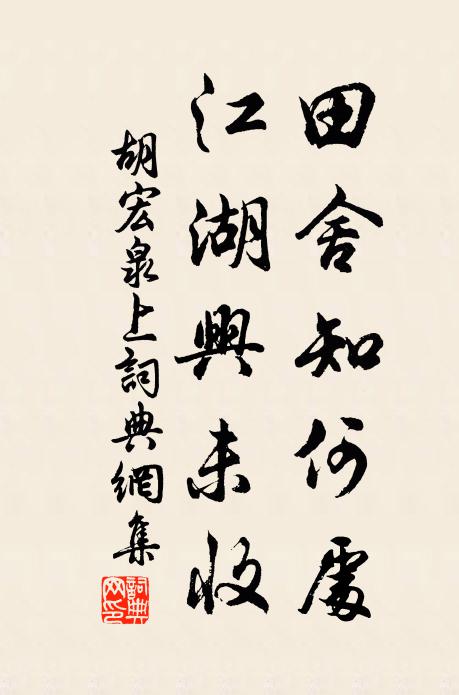 田舍知何處
江湖興未收
胡宏泉上詞典網集
詞典網印